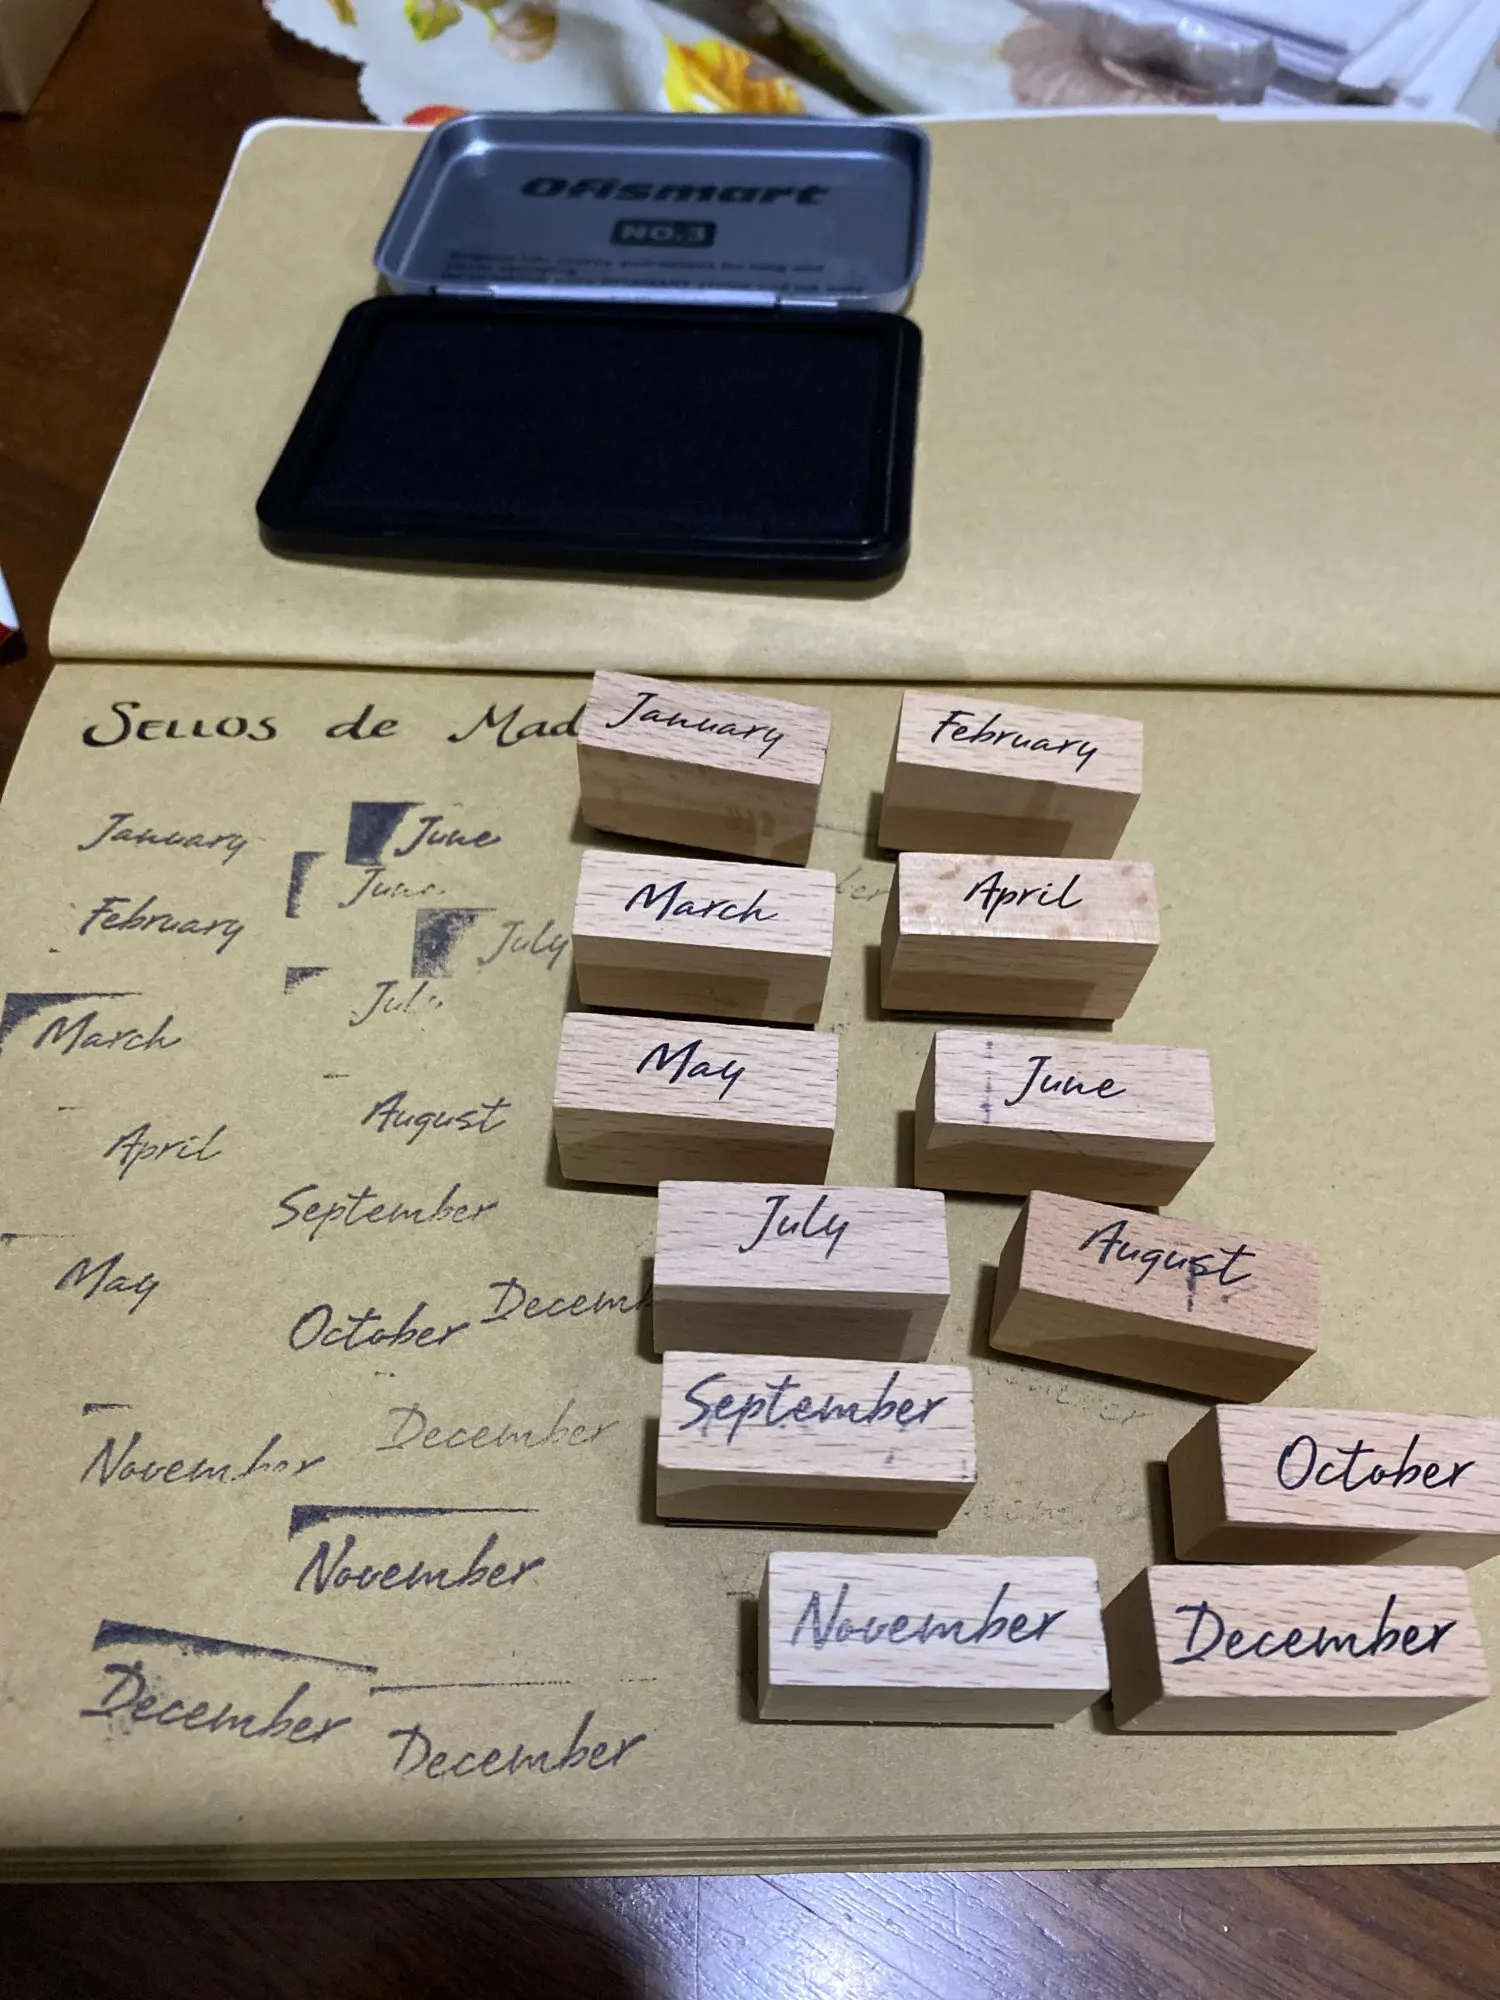 Ofismart
NO.3
SELLOS de Mad
January
February
January
June
March
April
June
February
July
March
July
May
June
August
April
September
July
August
May
October
Decemb
September
December
October
November
November
November
December
December
December